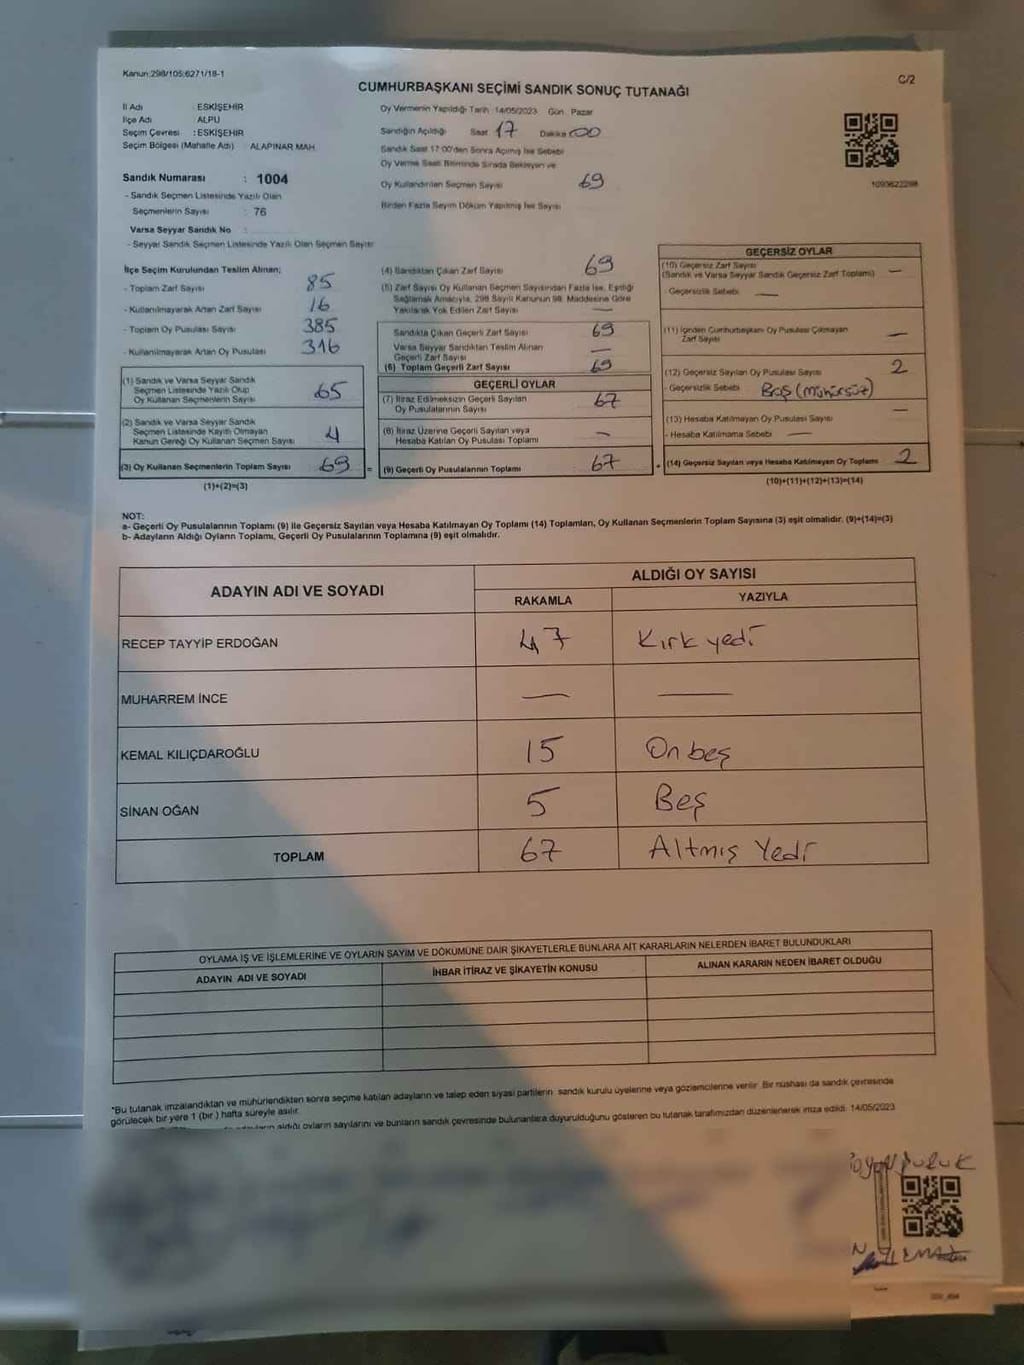 Kanun:298/105;6271/18-1
C/2
CUMHURBAŞKANI SEÇİMİ SANDIK SONUÇ TUTANAĞI
İl Adı : ESKİŞEHİR
İlçe Adı : ALPU
Seçim Çevresi : ESKİŞEHİR
Seçim Bölgesi (Mahalle Adı) : ALAPINAR MAH.
Sandık Numarası : 1004
- Sandık Seçmen Listesinde Yazılı Olan
Seçmenlerin Sayısı : 76
Varsa Seyyar Sandık No :
- Seyyar Sandık Seçmen Listesinde Yazılı Olan Seçmen Sayısı
Oy Vermenin Yapıldığı Tarih : 14/05/2023 Gün : Pazar
Sandığın Açıldığı Saat 17 Dakika 00
Sandık Saat 17:00'den Sonra Açılmış İse Sebebi
Oy Verme Saati Bitiminde Sırada Bekleyen ve
Oy Kullandırılan Seçmen Sayısı 69
Birden Fazla Sayım Döküm Yapılmış İse Sayısı
1093622298
İlçe Seçim Kurulundan Teslim Alınan;
- Toplam Zarf Sayısı 85
- Kullanılmayarak Artan Zarf Sayısı 16
- Toplam Oy Pusulası Sayısı 385
- Kullanılmayarak Artan Oy Pusulası 316
(1) Sandık ve Varsa Seyyar Sandık
Seçmen Listesinde Yazılı Olup
Oy Kullanan Seçmenlerin Sayısı 65
(2) Sandık ve Varsa Seyyar Sandık
Seçmen Listesinde Kayıtlı Olmayan
Kanun Gereği Oy Kullanan Seçmen Sayısı 4
(3) Oy Kullanan Seçmenlerin Toplam Sayısı 69 =
(1)+(2)=(3)
(4) Sandıktan Çıkan Zarf Sayısı 69
(5) Zarf Sayısı Oy Kullanan Seçmen Sayısından Fazla İse, Eşitliği
Sağlamak Amacıyla, 298 Sayılı Kanunun 98. Maddesine Göre
Yakılarak Yok Edilen Zarf Sayısı —
Sandıkta Çıkan Geçerli Zarf Sayısı 69
Varsa Seyyar Sandıktan Teslim Alınan
Geçerli Zarf Sayısı —
(6) Toplam Geçerli Zarf Sayısı 69
GEÇERLİ OYLAR
(7) İtiraz Edilmeksizin Geçerli Sayılan
Oy Pusulalarının Sayısı 67
(8) İtiraz Üzerine Geçerli Sayılan veya
Hesaba Katılan Oy Pusulası Toplamı —
(9) Geçerli Oy Pusulalarının Toplamı 67 +
GEÇERSİZ OYLAR
(10) Geçersiz Zarf Sayısı
(Sandık ve Varsa Seyyar Sandık Geçersiz Zarf Toplamı) —
- Geçersizlik Sebebi —
(11) İçinden Cumhurbaşkanı Oy Pusulası Çıkmayan
Zarf Sayısı —
(12) Geçersiz Sayılan Oy Pusulası Sayısı 2
- Geçersizlik Sebebi Boş (mühürsüz)
(13) Hesaba Katılmayan Oy Pusulası Sayısı —
- Hesaba Katılmama Sebebi —
(14) Geçersiz Sayılan veya Hesaba Katılmayan Oy Toplamı 2
(10)+(11)+(12)+(13)=(14)
NOT:
a- Geçerli Oy Pusulalarının Toplamı (9) ile Geçersiz Sayılan veya Hesaba Katılmayan Oy Toplamı (14) Toplamları, Oy Kullanan Seçmenlerin Toplam Sayısına (3) eşit olmalıdır. (9)+(14)=(3)
b- Adayların Aldığı Oyların Toplamı, Geçerli Oy Pusulalarının Toplamına (9) eşit olmalıdır.
ADAYIN ADI VE SOYADI
ALDIĞI OY SAYISI
RAKAMLA YAZIYLA
RECEP TAYYİP ERDOĞAN 47 Kırk yedi
MUHARREM İNCE — —
KEMAL KILIÇDAROĞLU 15 On beş
SİNAN OĞAN 5 Beş
TOPLAM 67 Altmış Yedi
OYLAMA İŞ VE İŞLEMLERİNE VE OYLARIN SAYIM VE DÖKÜMÜNE DAİR ŞİKAYETLERLE BUNLARA AİT KARARLARIN NELERDEN İBARET BULUNDUKLARI
ADAYIN ADI VE SOYADI İHBAR İTİRAZ VE ŞİKAYETİN KONUSU ALINAN KARARIN NEDEN İBARET OLDUĞU
*Bu tutanak imzalandıktan ve mühürlendikten sonra seçime katılan adayların ve talep eden siyasi partilerin sandık kurulu üyelerine veya gözlemcilerine verilir. Bir nüshası da sandık çevresinde
görülecek bir yere 1 (bir) hafta süreyle asılır.
aldığı oyların sayılarını ve bunların sandık çevresinde bulunanlara duyurulduğunu gösteren bu tutanak tarafımızdan düzenlenerek imza edildi. 14/05/2023